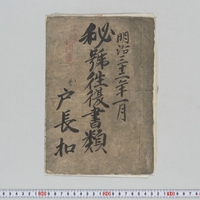 明治三十二年一月
秘號往復書類
戸長扣